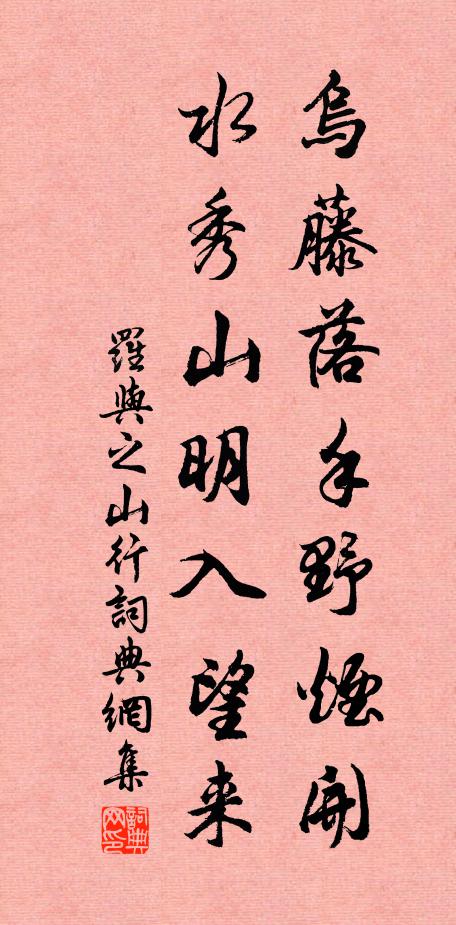 烏藤落手野煙開
水秀山明入望来
羅與之山行詞典網集
詞典網印